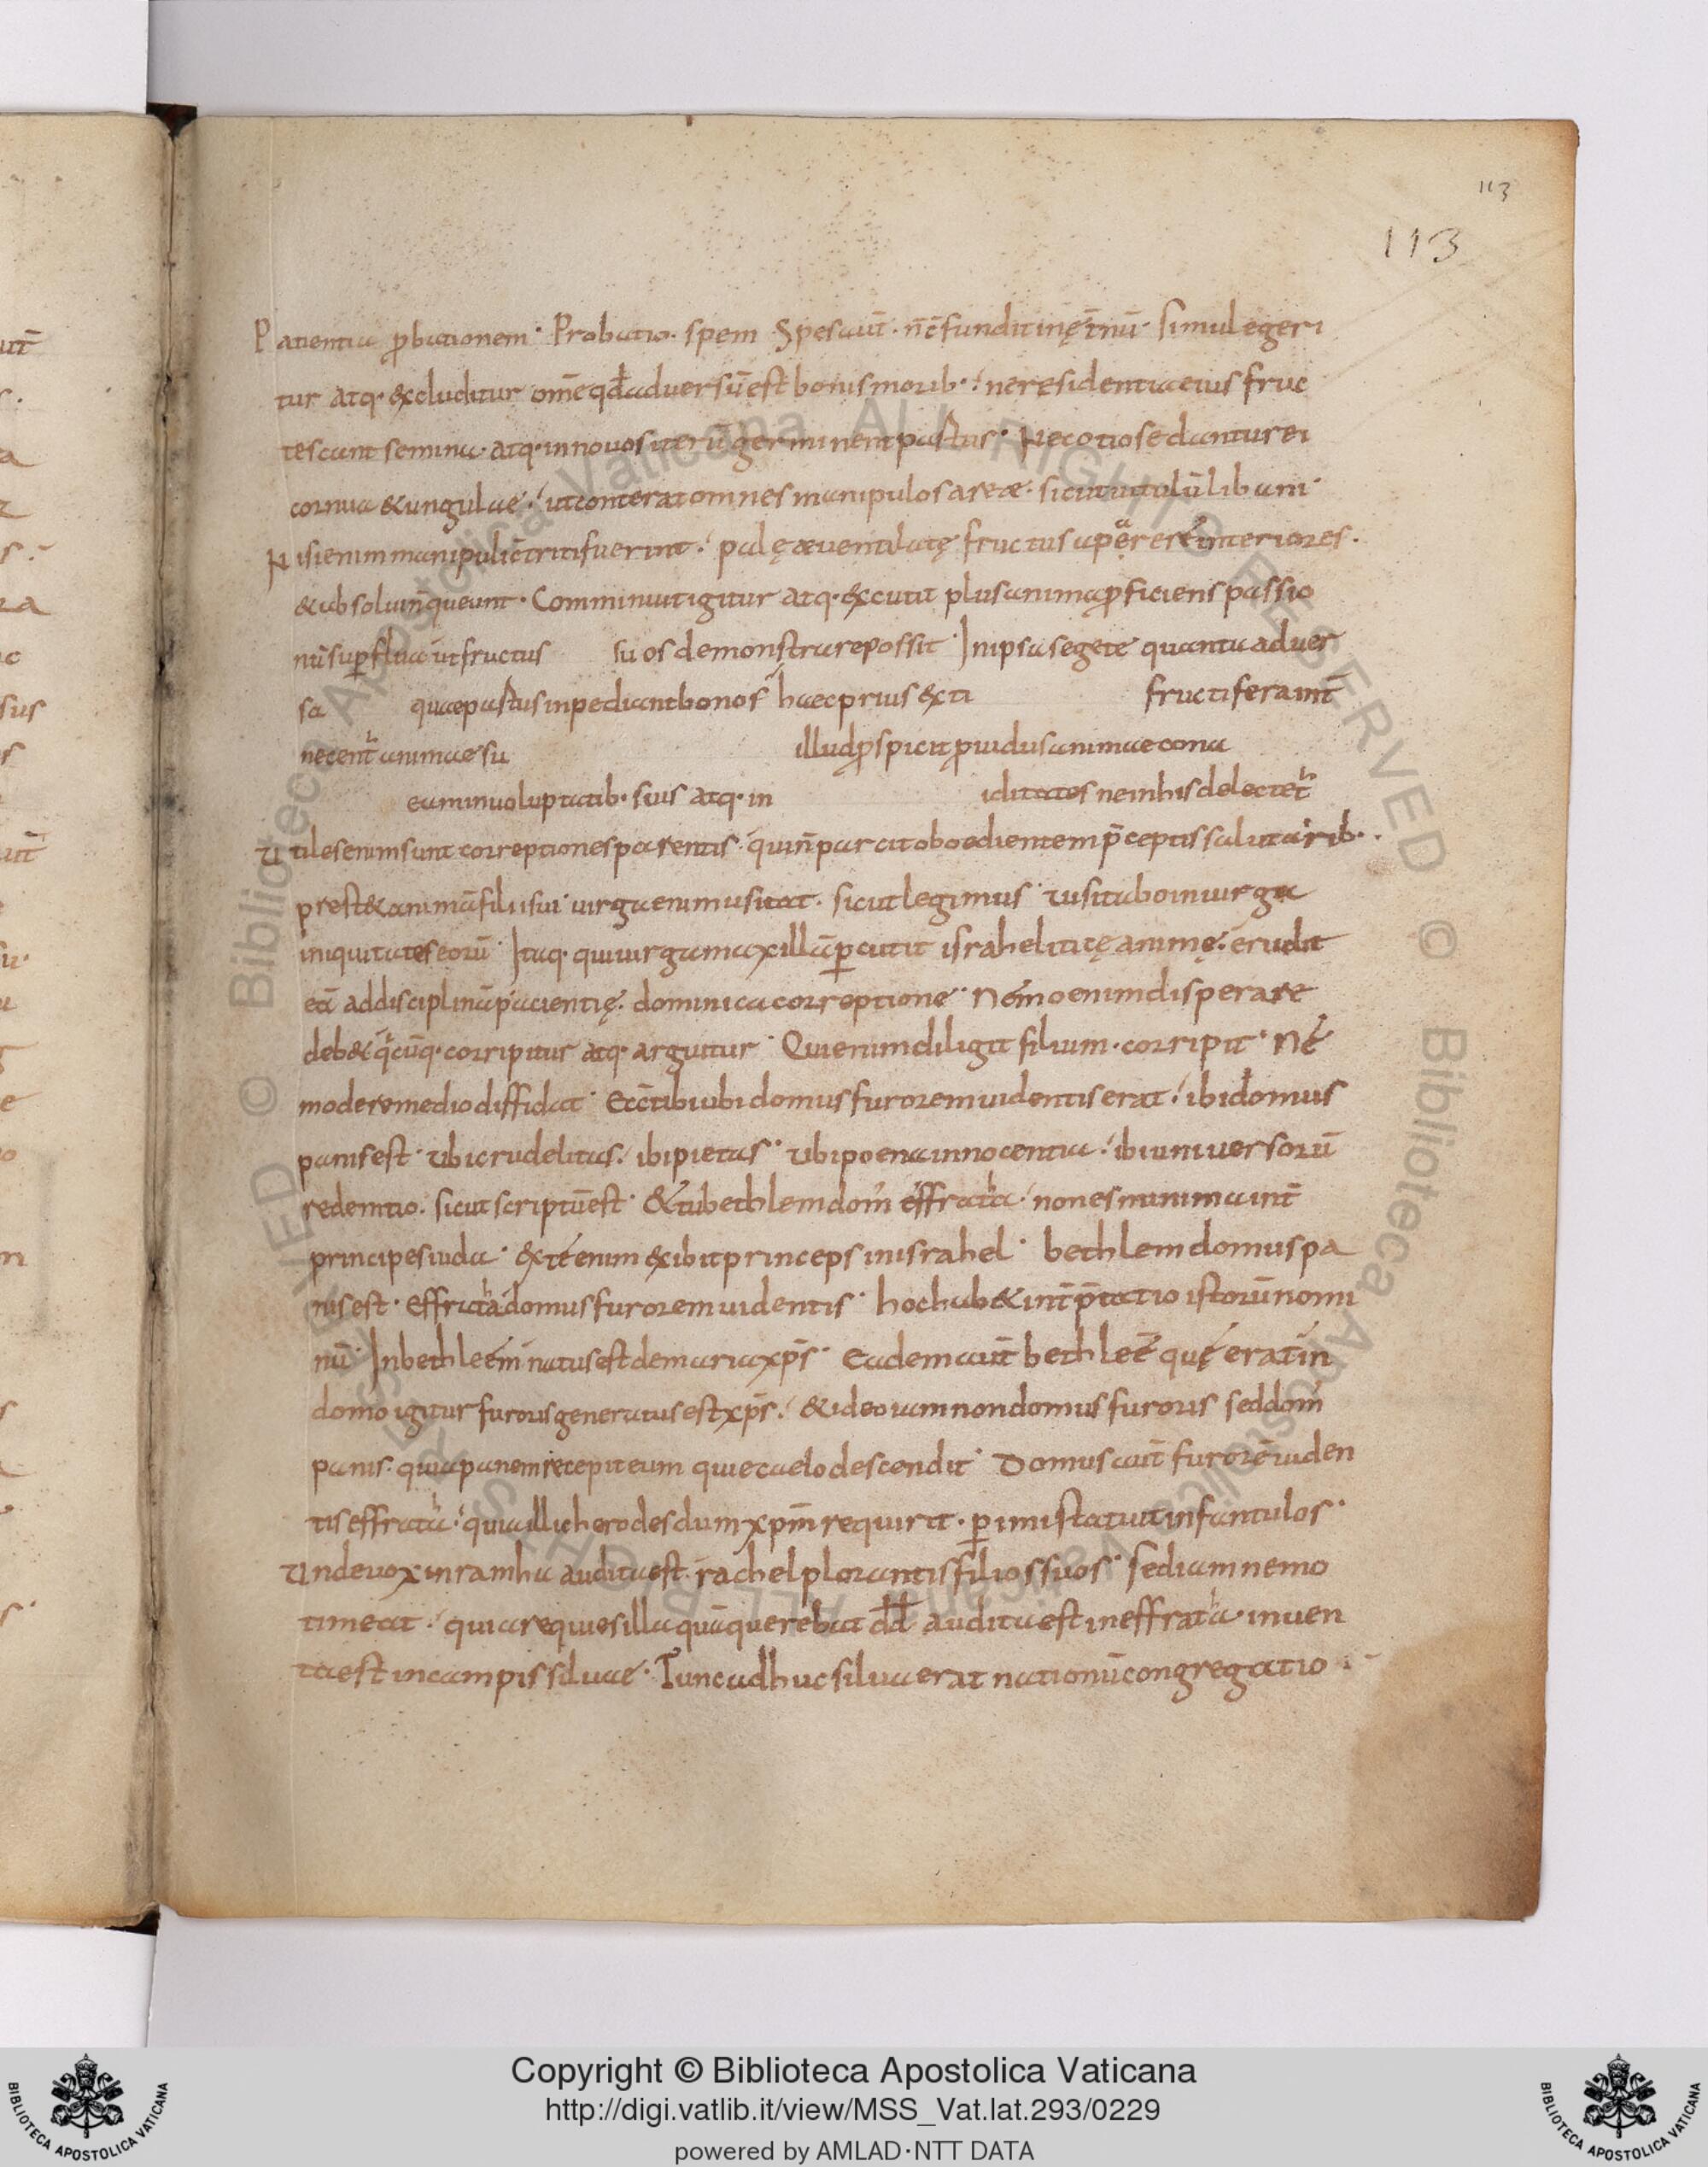 113
113
Patientia ꝓbationem · Probatio · spem Spes aut̄ · n̄ c̄funditinę t̄nū · Simul egeri
tur atq· excluditur om̄e qđ aduersū est bonis morib· ne residentia eius fruc
tescant semina · atq· innouos iterū germinent pastus · Nec otiose dantur ei
cornua & ungulae · ut conterat omnes manipulos areæ · sicut uitulū libani ·
Nisi enim manipuli c̄triti fuerint · palę æuentilatę fructus apęrere interiores ·
& absolui n̄ queunt · Comminuit igitur atq· excutit plus anima ꝓficiens passio
nū suꝑflua ut fructus suos demonstrare possit · In ipsa segete quanta aduer
sa quae pastus inpediant bonos haec prius exti fructiferam t̄
necent̄ animae su illud ꝓspicit ꝓuidus animae cona
eam in uoluptatib· suis atq· in iditates ne in his delectet̄
Utiles enim sunt correptiones parentis · qui n̄ parcit oboedientem p̄ceptis salutarib· ·
prest& animā filii sui · uirga enim usitat · sicut legimus · Uisitabo in uirga
iniquitates eorū · Itaq· qui uirga maxillā ꝑcutit israheliticę animę · erudit
eā ad disciplinā pacientię · dominica correptione · Nemo enim disperare
deb& q̄cūq· corripitur atq· arguitur · Qui enim diligit filium · corripit · Ne
mo de remedio diffidat · Ecc̄ tibi ubi domus furorem uidentis erat · ibi domus
panis est · ubi crudelitas · ibi pietas · ubi poena innocentia · ibi uniuersorū
redemtio · sicut scriptū est · & tu bethlem dom̄ effrata · non es minima int̄
principes iuda · ex te enim exibit princeps in israhel · bethlem domus pa
nis est · effrata domus furorem uidentis · hoc hab& int̄p̄tatio istorū nomi
nū · In bethleem natus est de maria xp̄s · Eadem aut̄ bethleē quę erat in
domo igitur furoris generatus est xp̄s · & ideo iam non domus furoris sed dom̄
panis · quia panem recepit eum qui e caelo descendit · Domus aut̄ furorē uiden
tis effrata · quia illic herodes dum xp̄m requirit · ꝑimi statuit infantulos ·
Unde uox in ramha audita est · rachel plorantis filios suos · sed iam nemo
timeat · quia requies illa quā querebat dd̄ audita est in effrata · inuen
ta est in campis siluae · Tunc adhuc silua erat nationū congregatio ·
Copyright © Biblioteca Apostolica Vaticana
http://digi.vatlib.it/view/MSS_Vat.lat.293/0229
powered by AMLAD·NTT DATA